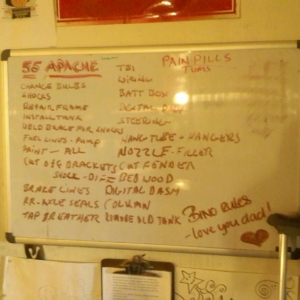 56 APACHE
CHANGE BULBS
SHOCKS
REPAIR FRAME
INSTALL TANK
WELD BRACE FOR SHOCKS
FUEL LINES - PUMP
PAINT - ALL
CUT OFF BRACKETS
SHOCK - DIFF
BRAKE LINES
RR. AXLE SEALS
TAP BREATHER
TBI
WIRING
BATT BOX
DENTAL
STEERING
HANGERS
NOZZLE - FILLER
CUT FENDER
BED WOOD
DIGITAL DASH
COLUMN
REMOVE OLD TANK
PAIN PILLS
TUMS
BINO RULES
-love you dad!